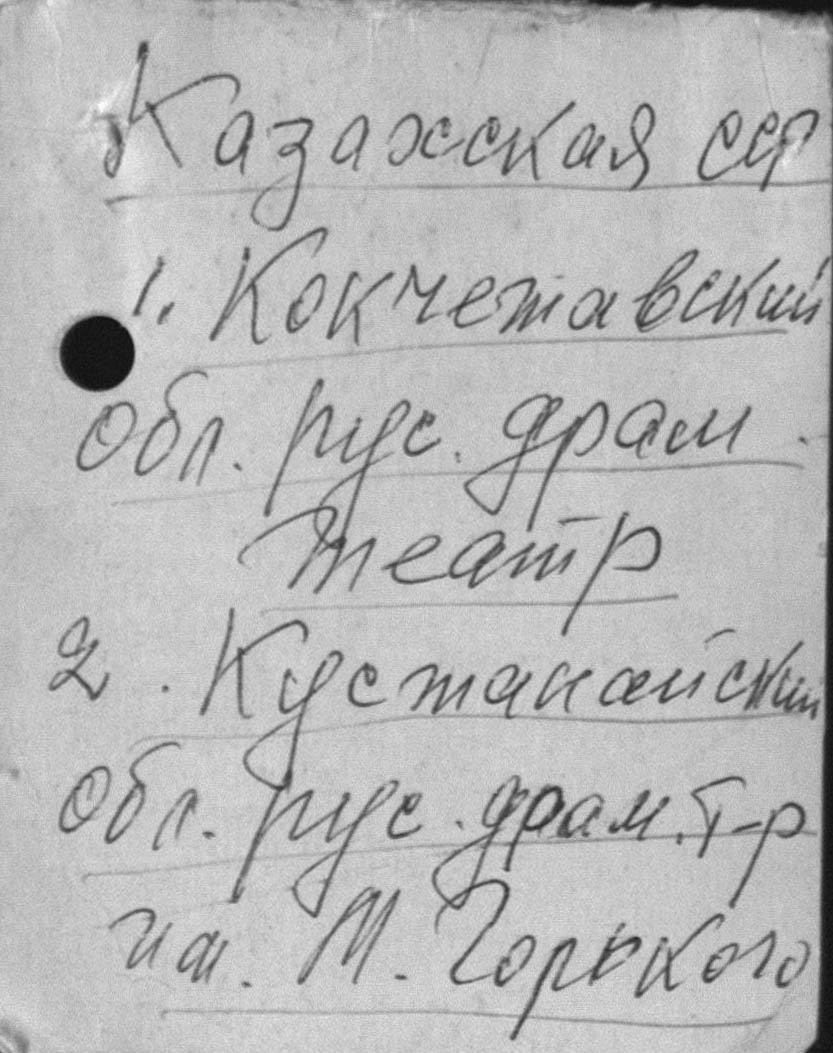 Казахская ССР
1. Кокчетавский
обл. рус. драм.
театр
2. Кустанайский
обл. рус. драм. т-р
им. М. Горького